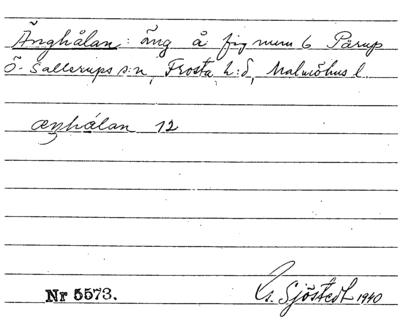 Änghålan: äng å fig num 6 Pärup
Ö. Sallerups s:n, Frosta h:d, Malmöhus l.
12
Nr 5573.
Sjöstedt 1940